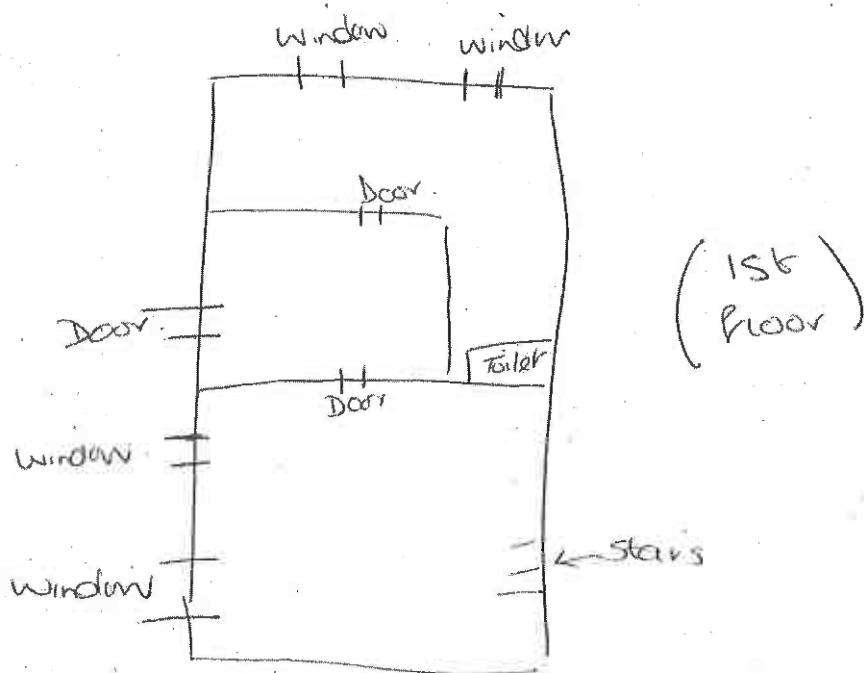 Window
Window
Door.
(1st
floor)
Door.
Toilet
Door
Window
Stairs
Window